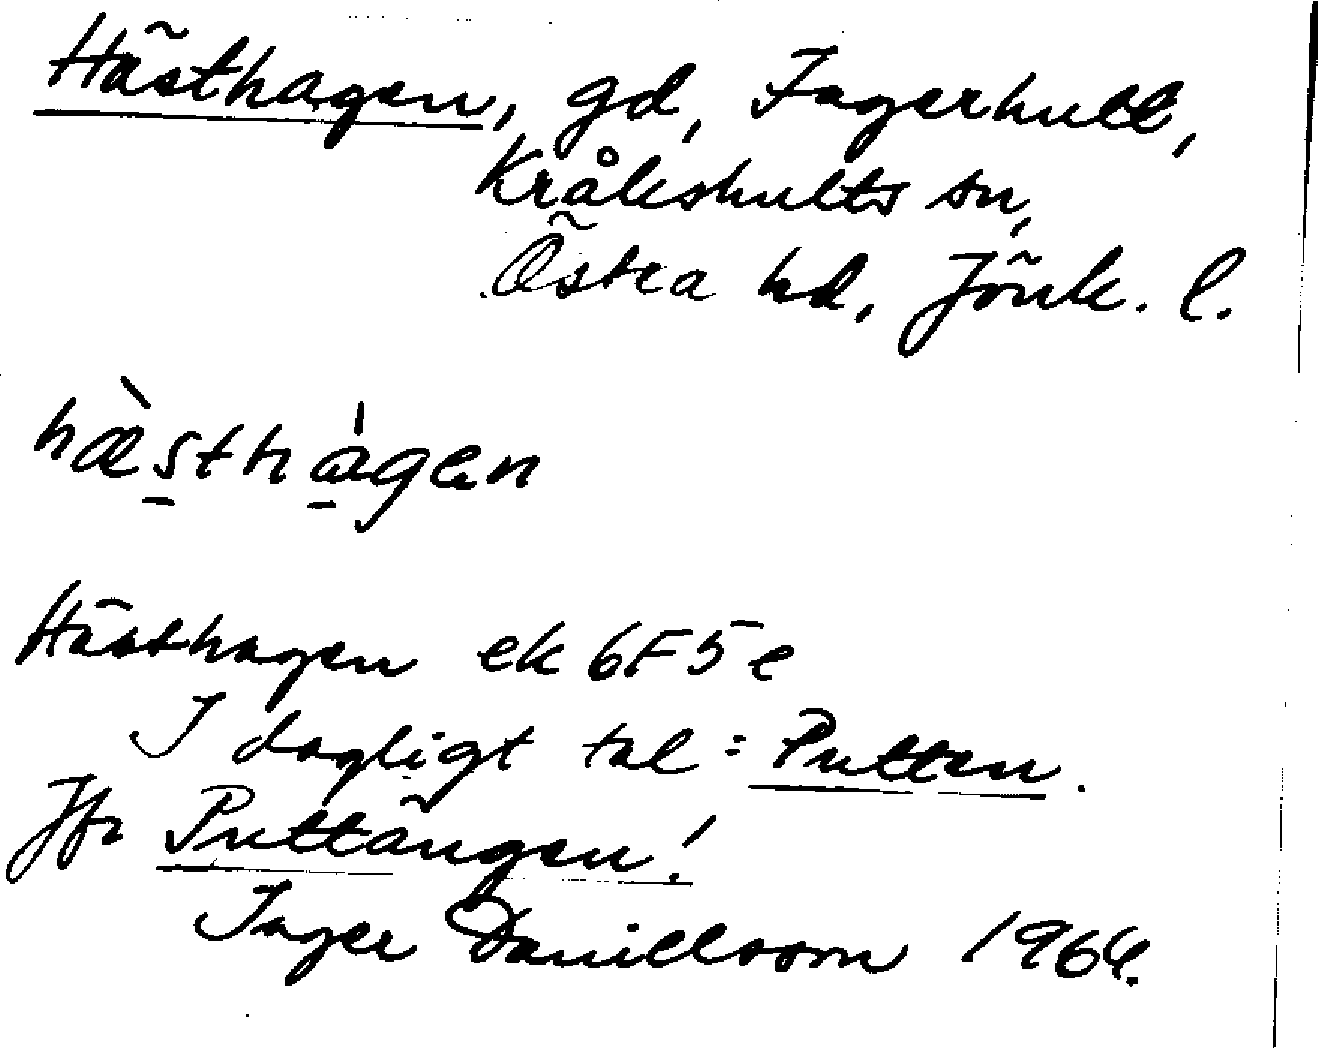 Hästhagen, gd, Fagerhult,
Kråkshults sn,
Östra hd, Jönk. l.
hæ̀stha̍gen
Hästhagen ek 6F5e
I dagligt tal: Putten.
Jfr Puttängen!
Inger Danielsson 1964.